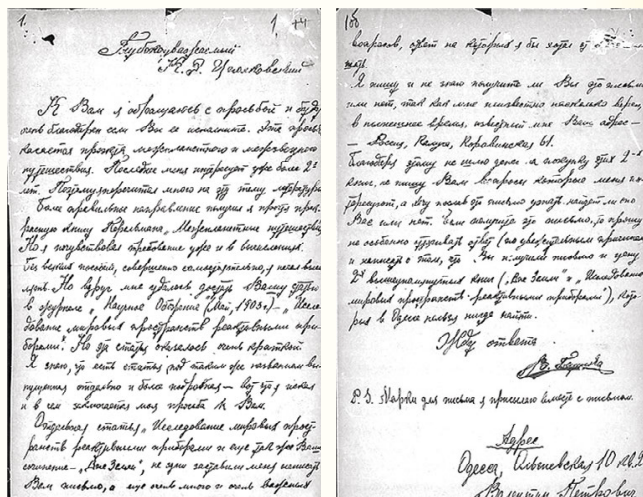 1.
Глубокоуважаемый
К. Э. Циолковский
К Вам я обращаюсь с просьбой и буду
очень благодарен если Вы ее исполните. Эта просьба
касается проэкта межпланетного и межзвездного
путешествия. Последнее меня интересует уже более 2-х
лет. Поэтому я перечитал много на эту тему литературы.
Более правильное направление получил я прочтя прекрасную
книгу Перельмана „Межпланетные путешествия“
Но я почувствовал требование уже и в вычислениях.
Без всяких пособий, совершенно самостоятельно, я начал вычислять
Но вдруг мне удалось достать Вашу статью
в журнале „Научное Обозрение“ (Май, 1903г.) – „Исследование
мировых пространств реактивными приборами“.
Но эта статья оказалась очень краткой.
Я знаю, что есть статья под таким же названием выпущенная
отдельно и более подробная – вот что я искал
и в чем заключается моя просьба к Вам.
Отдельная статья „Исследование мировых пространств
реактивными приборами“ и еще также Ваше
сочинение – „Вне Земли“, не одни заставили меня написать
Вам письмо, а еще очень много и очень важных
вопросов, ответ на которых я бы хотел от
Я пишу и не знаю получите ли Вы это письмо
или нет, так как мне неизвестно насколько верен,
в нынешнее время, известный мне Ваш адрес –
– Россия, Калуга, Коровинская 61.
Благодаря этому не шлю денег на покупку этих 2-х
книг, не пишу Вам вопросы которые меня интересуют,
а хочу послав это письмо узнать найдет ли оно
Вас или нет. Если получите это письмо, то прошу
не особенно
и написать о том, что Вы получили письмо и цену
2-х вышеупомянутых книг („Вне Земли“ и „Исследование
мировых пространств реактивными приборами“), которых
в Одессе нельзя нигде найти.
Жду ответа
P. S. Марки для письма я присылаю вместе с письмом.
Адрес
Одесса, Ольгиевская 10 кв.